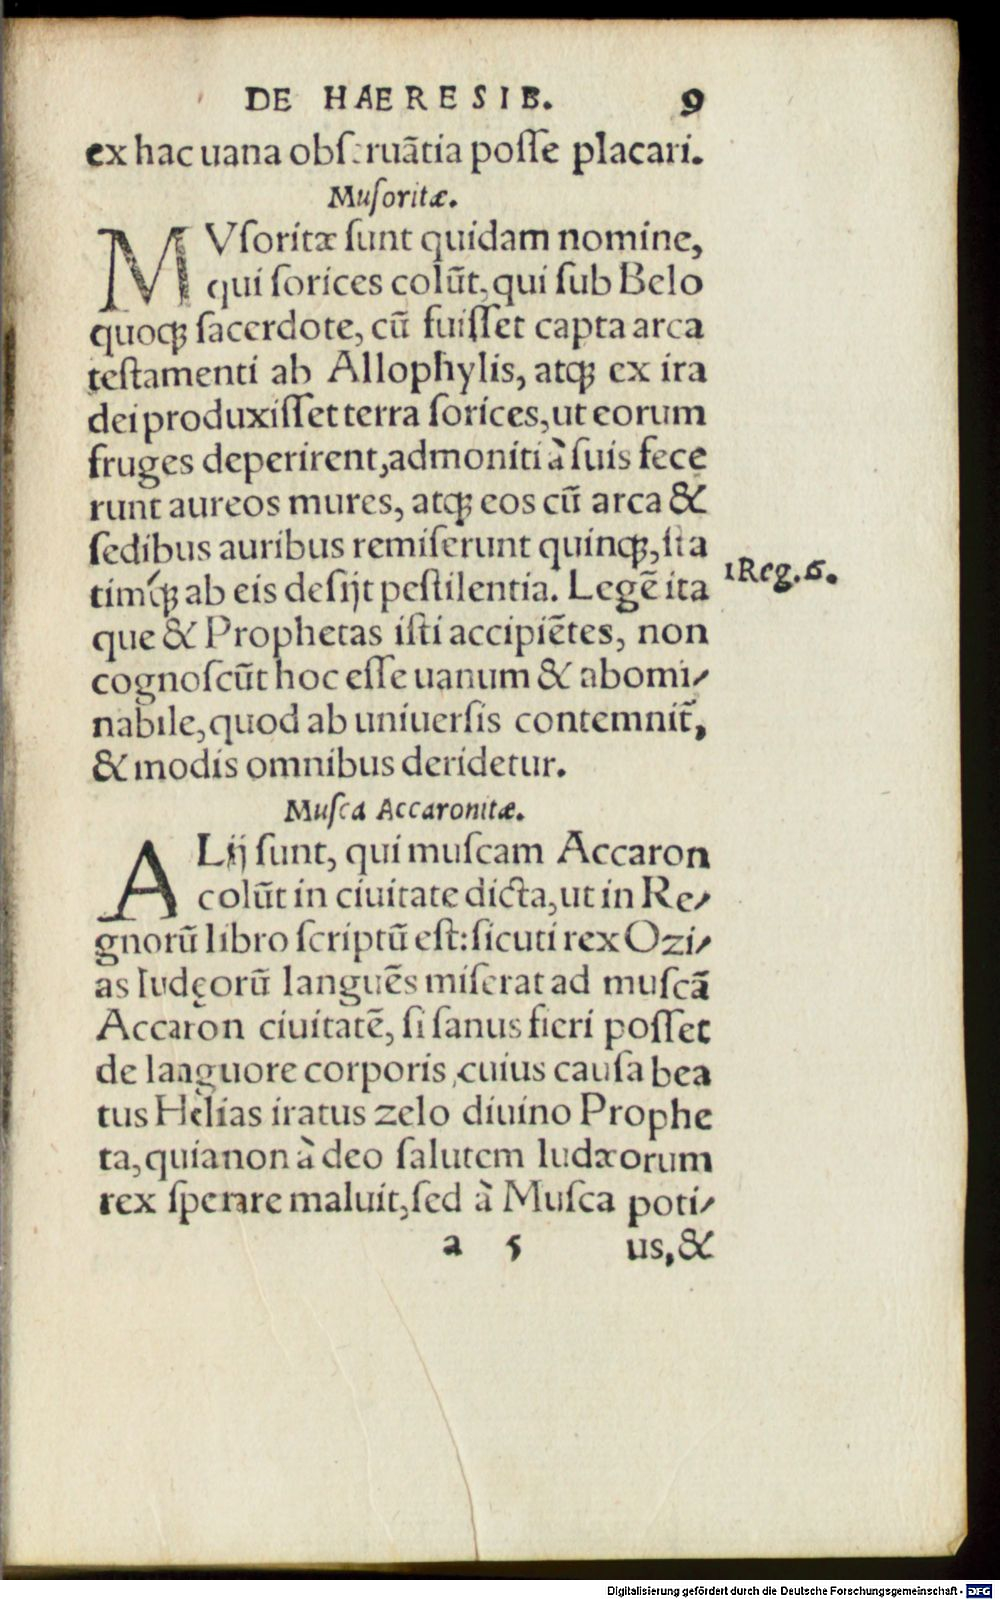 DE HAERESIB. 9
ex hac uana obseruãtia posse placari.
Musoritæ.
MVsoritæ sunt quidam nomine,
qui sorices colũt, qui sub Belo
quoqꝫ sacerdote, cũ fuisset capta arca
testamenti ab Allophylis, atqꝫ ex ira
dei produxisset terra sorices, ut eorum
fruges deperirent, admoniti à suis fece
runt aureos mures, atqꝫ eos cũ arca &
sedibus auribus remiserunt quinqꝫ, sta
timq́ꝫ ab eis desijt pestilentia. Legẽ ita
1 Reg. 6.
que & Prophetas isti accipiẽtes, non
cognoscũt hoc esse uanum & abomi-
nabile, quod ab uniuersis contemnit̃,
& modis omnibus deridetur.
Musca Accaronitæ.
ALij sunt, qui muscam Accaron
colũt in ciuitate dicta, ut in Re-
gnorũ libro scriptũ est: sicuti rex Ozi-
as Iudęorũ languẽs miserat ad muscã
Accaron ciuitatẽ, si sanus fieri posset
de languore corporis, cuius causa bea
tus Helias iratus zelo diuino Prophe
ta, quia non à deo salutem Iudæorum
rex sperare maluit, sed à Musca poti-
a 5 us, &
Digitalisierung gefördert durch die Deutsche Forschungsgemeinschaft - DFG